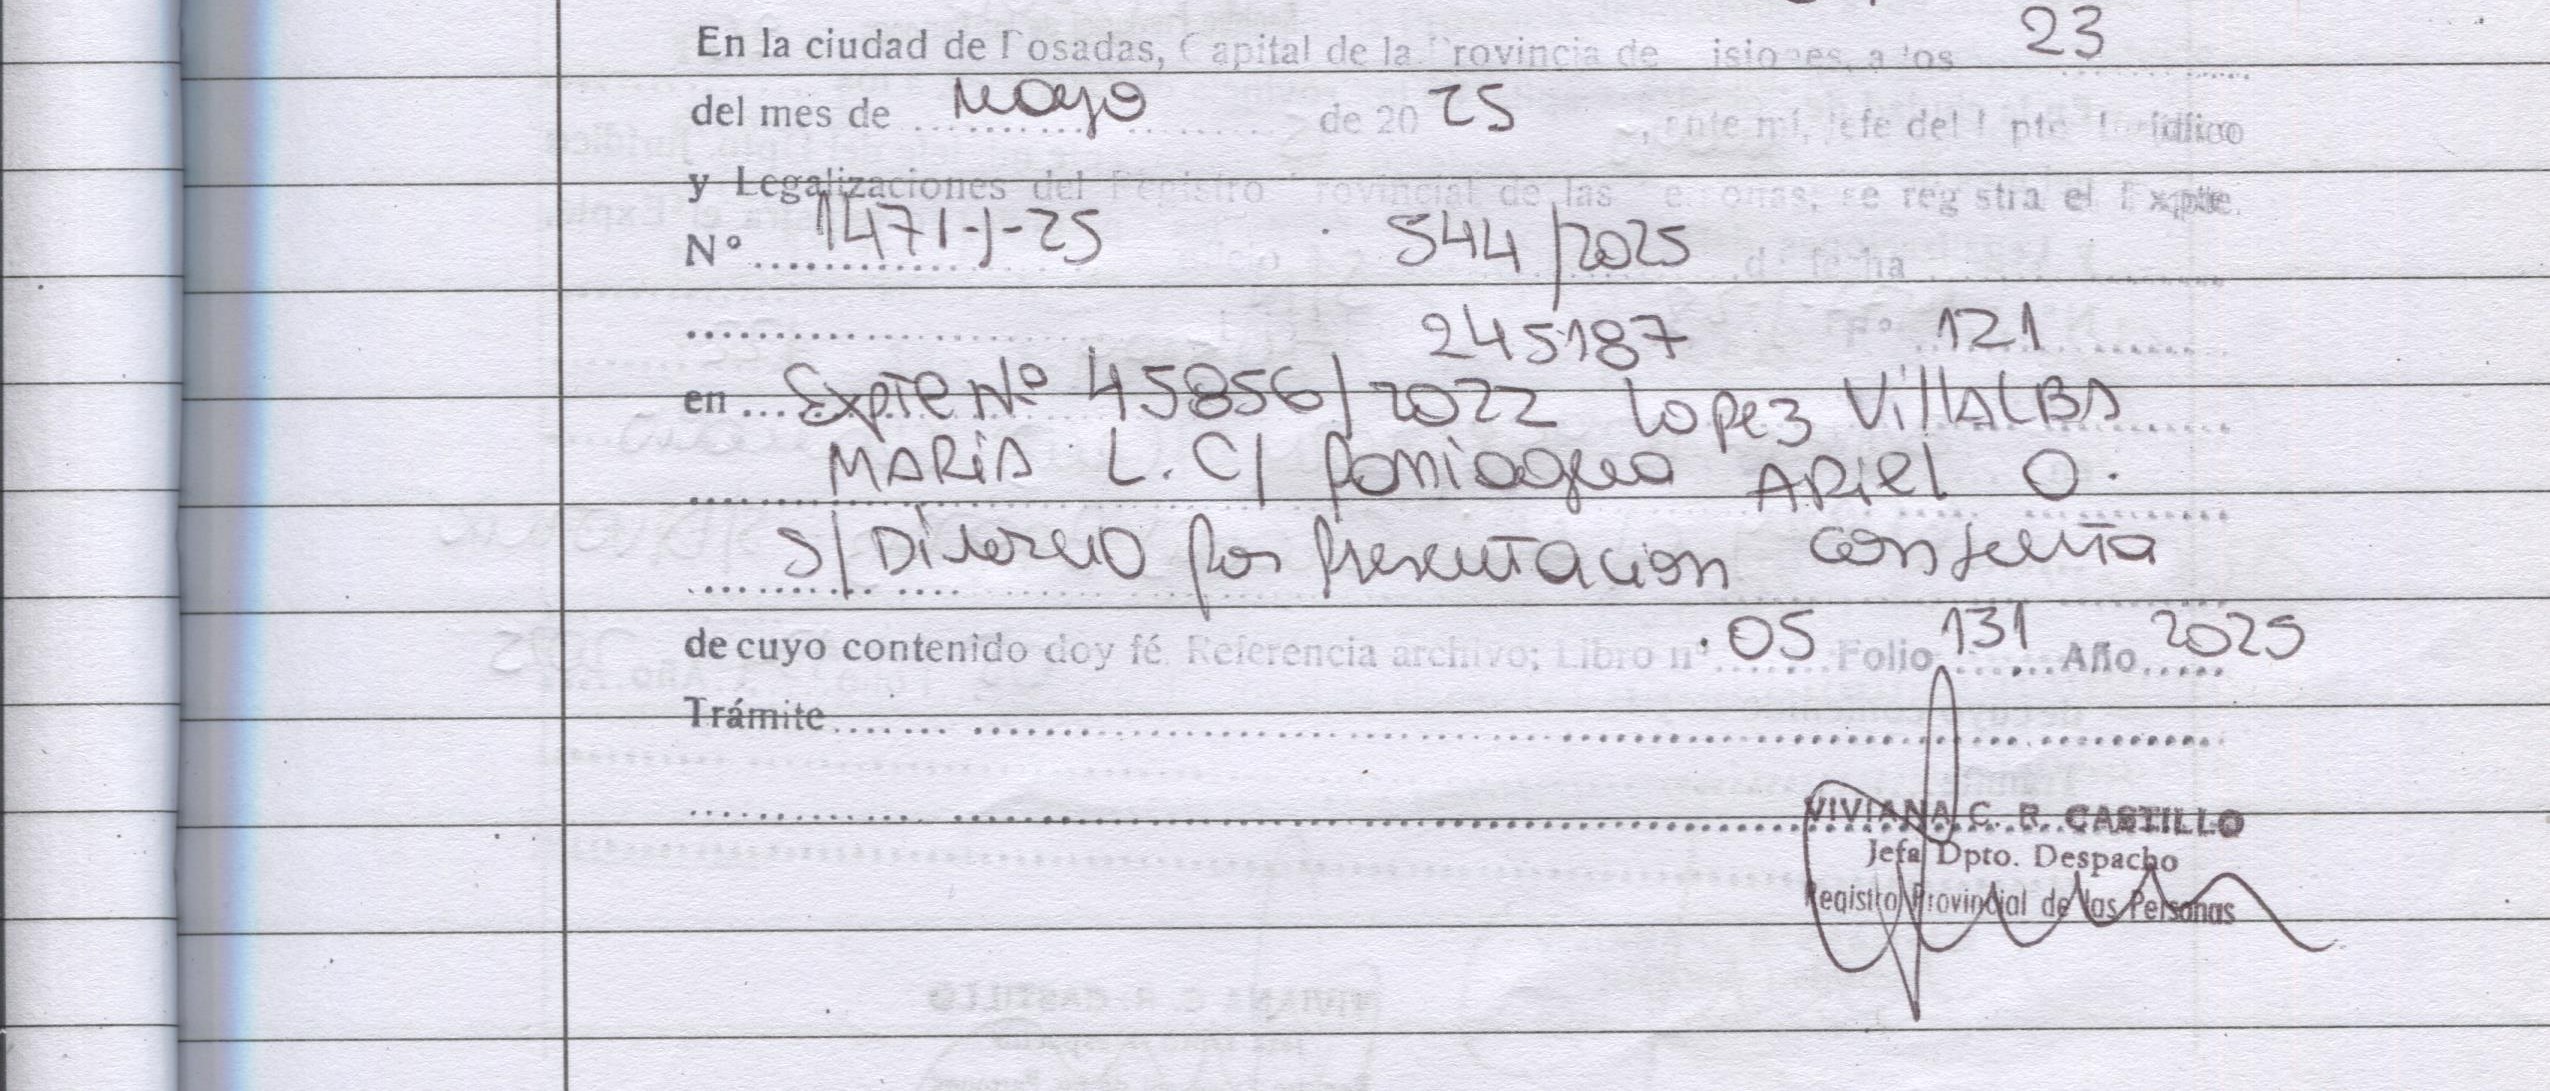 En la ciudad de Posadas, Capital de la Provincia de Misiones, a los 23
del mes de Mayo de 20 25, ante mí, Jefe del Dpto. Jurídico
y Legalizaciones del Registro Provincial de las Personas, se registra el Expte.
Nº 1471-J-25 544/2025 de fecha
245187 Nº 121
en Expte Nº 45856/2022 Lopez VillALBA
MARiA L. C/ Paniagua ARiel O.
S/ Divorcio Por Presentacion conjunta
de cuyo contenido doy fé. Referencia archivo; Libro nº 05 Folio 131 Año 2025
Trámite
VIVIANA C. R. CASTILLO
Jefa Dpto. Despacho
Registro Provincial de las Personas